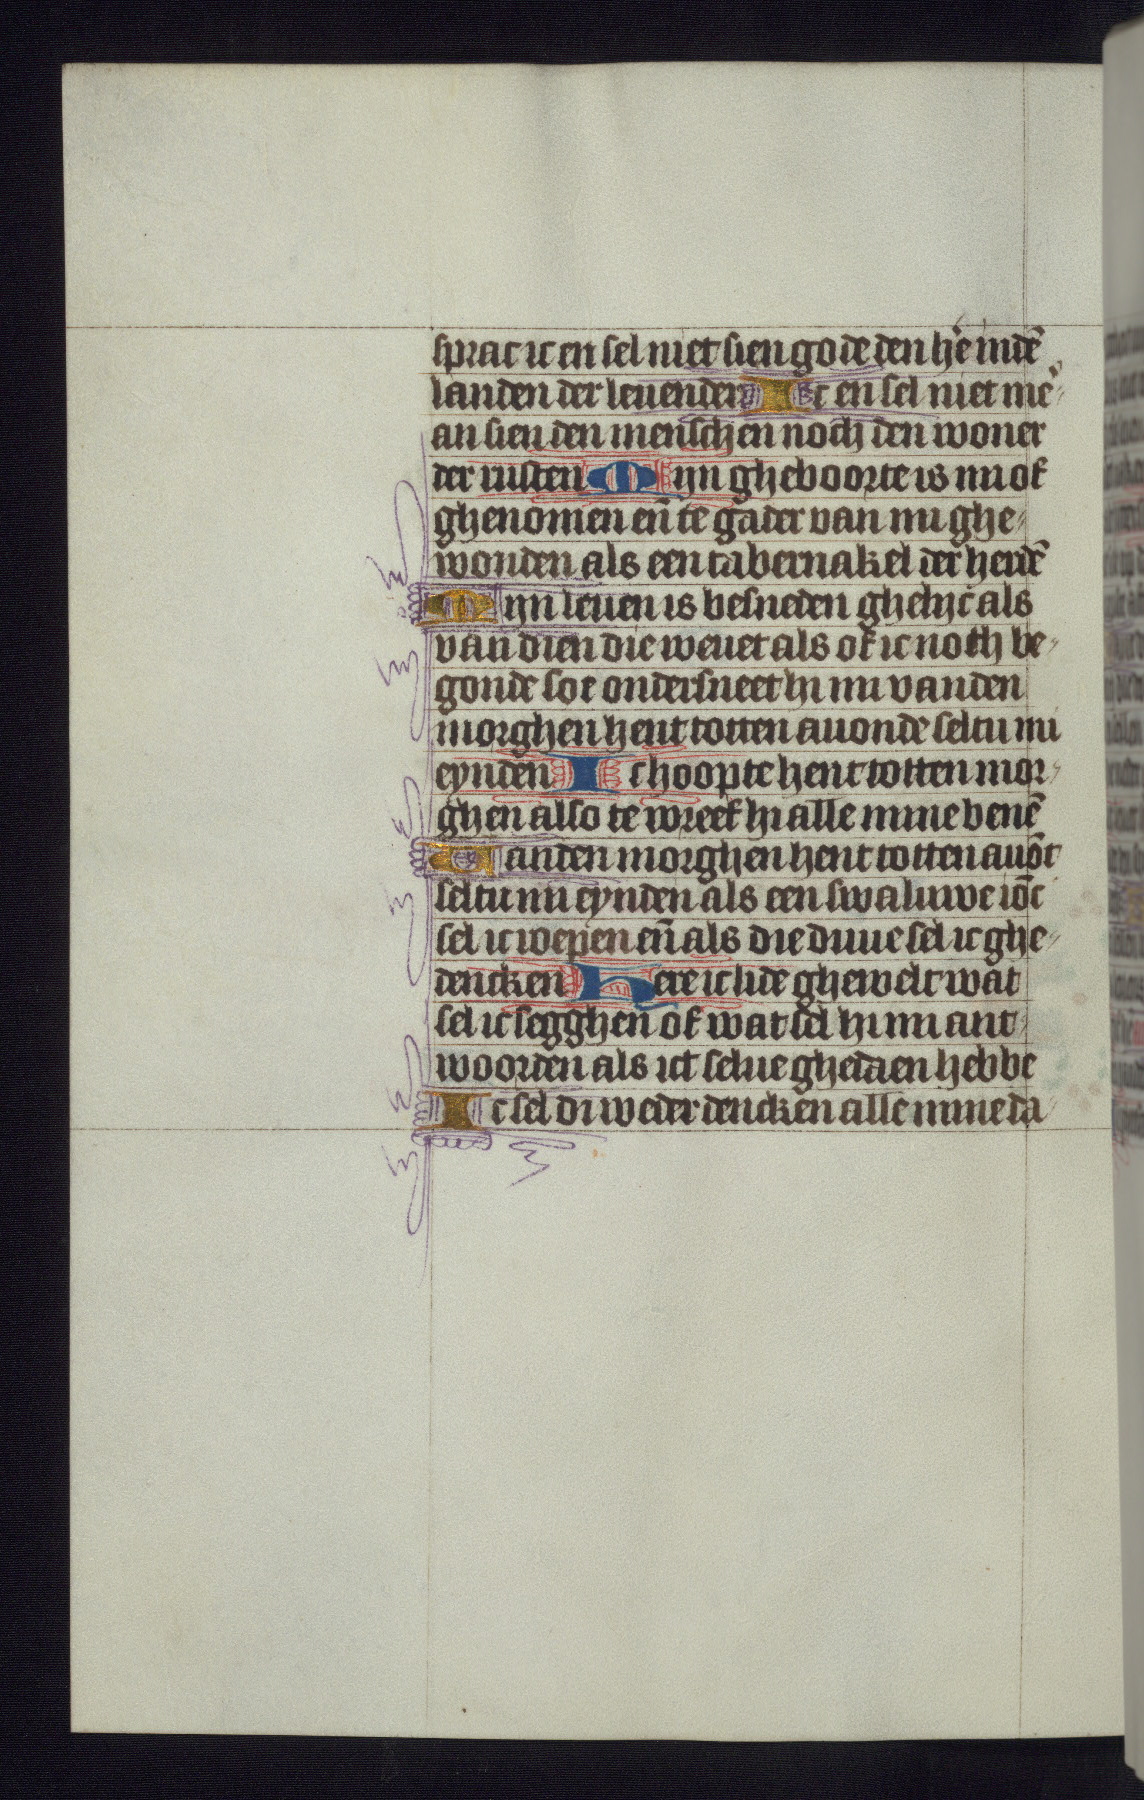 sprac ic en sel niet sien gode den he͛e indē
landen der leuender Ic en sel niet me͛
an sien den menschen noch den woner
der rusten Mijn gheboorte is mi of
ghenomen en̄ te gader van mi ghe
wonden als een tabernakel der herdē
Mijn leuen is besneden ghelijc als
van dien die weuet als of ic noch be
gonde soe ondersneet hi mi vanden
morghen hent totten auonde seltu mi
eynden Ic hoopte hent totten mor
ghen also te wreef hi alle mine benē
Vanden morghen hent totten auōt
seltu mi eynden als een swaluwe iōc
sel ic wepen en̄ als die duue sel ic ghe
dencken Here ic lide ghewelt wat
sel ic segghen of wat sel hi mi ant
woorden als ict selue ghedaen hebbe
Ic sel di weder dencken alle mine da